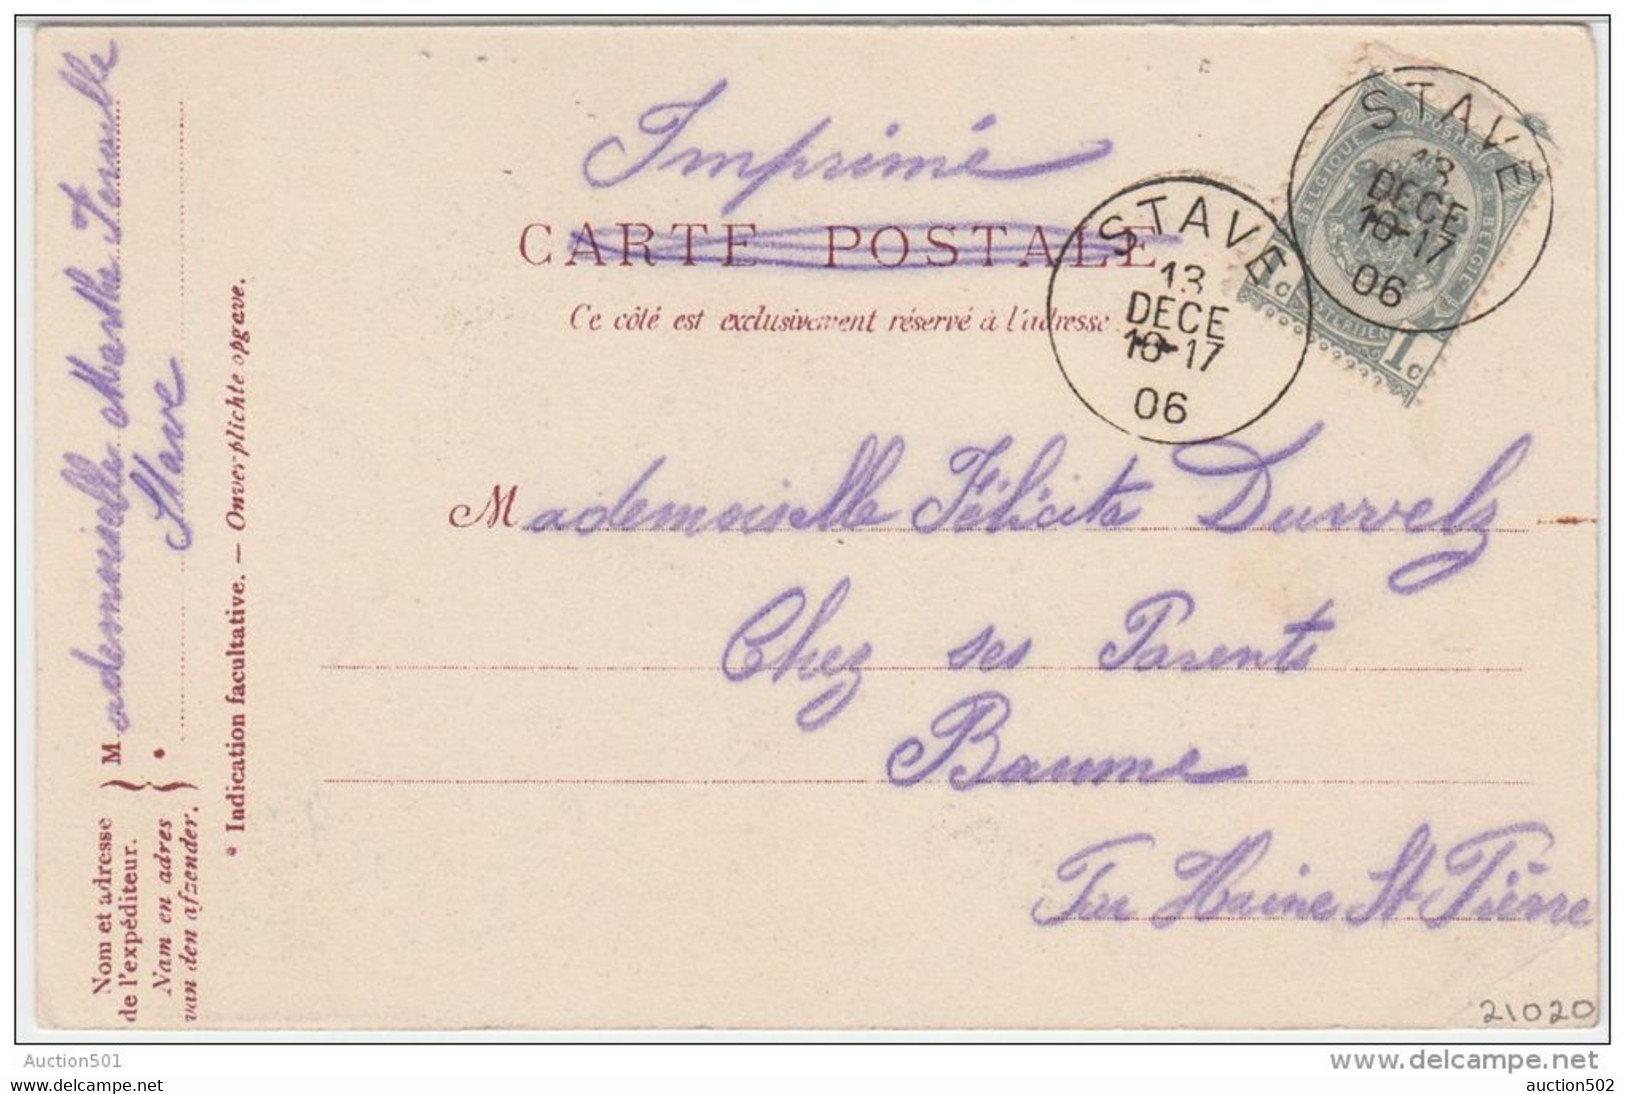 Imprimé
CARTE POSTALE
Ce côté est exclusivement réservé à l'adresse
STAVE
13
DECE
16-17
06
STAVE
13
DECE
16-17
06
POSTES
BELGIQUE
BELGIE
1c
1c
Mademoiselle Félicité
Chez ses Parents
Baume
Haine St Pierre
Mademoiselle Marthe
Stave
Nom et adresse
de l'expéditeur.
Nam en adres
van den afzender.
* Indication facultative. — Onverplichte opgave.
21020
Auction501
www.delcampe.net
les-belles-cartes.com
auction502